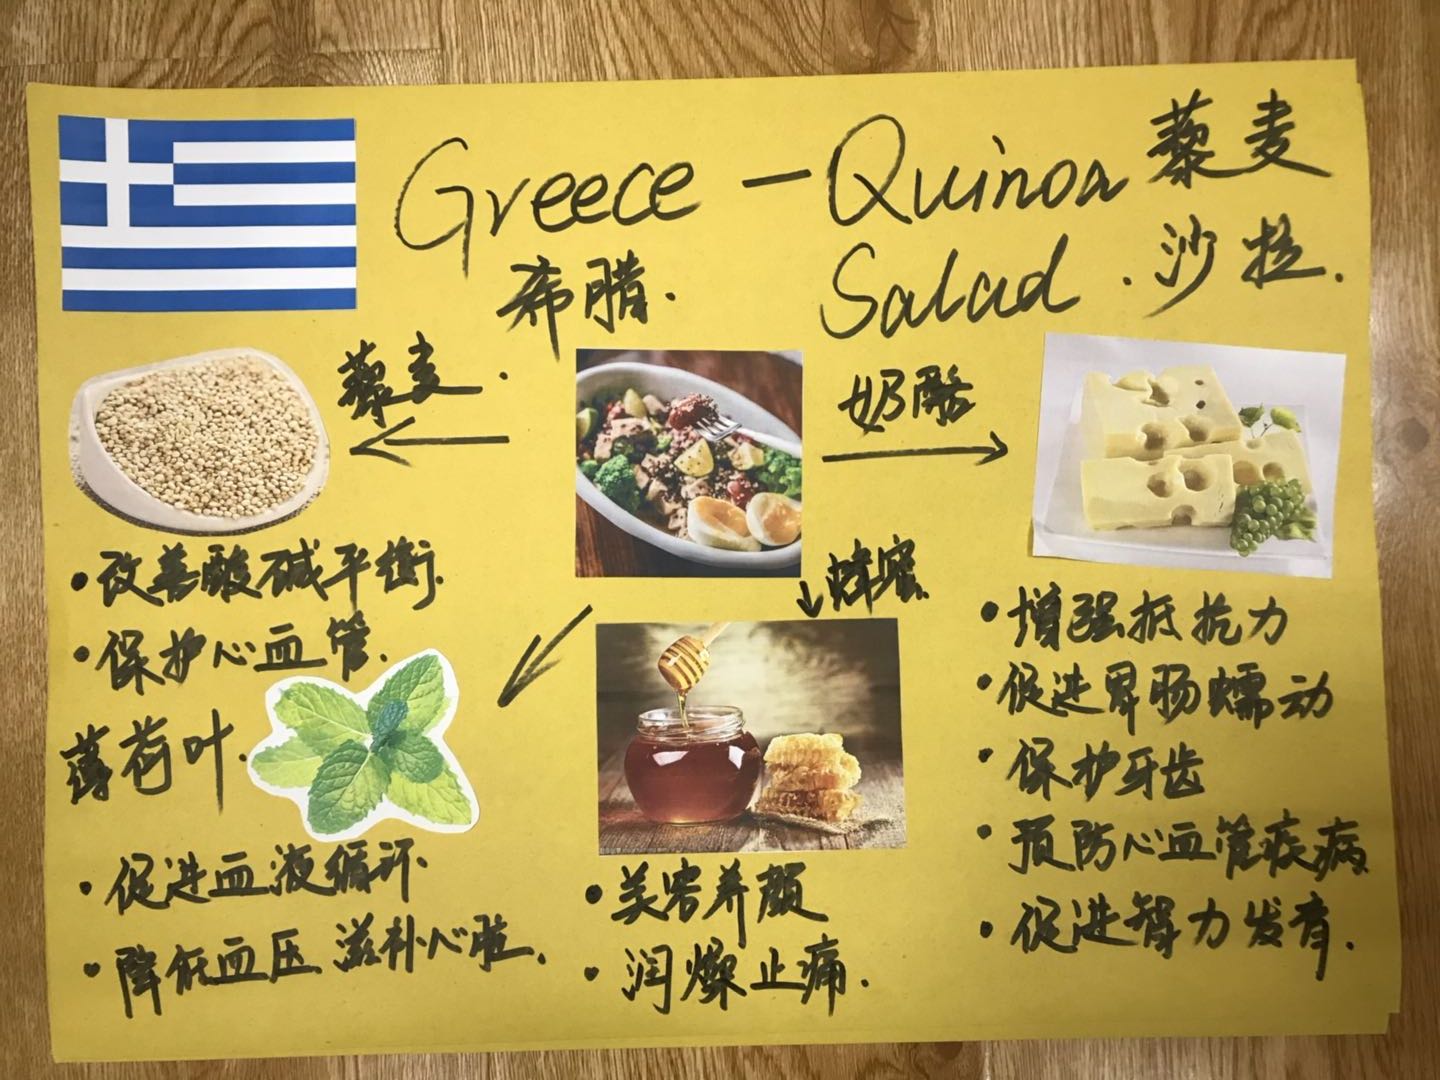 Greece - Quinoa 藜麦
希腊. Salad . 沙拉.
藜麦.
奶酪
蜂蜜
• 改善酸碱平衡.
• 保护心血管.
薄荷叶.
• 促进血液循环.
• 降低血压 滋补心脏.
• 美容养颜
• 润燥止痛.
• 增强抵抗力
• 促进胃肠蠕动
• 保护牙齿
• 预防心血管疾病
• 促进智力发育.